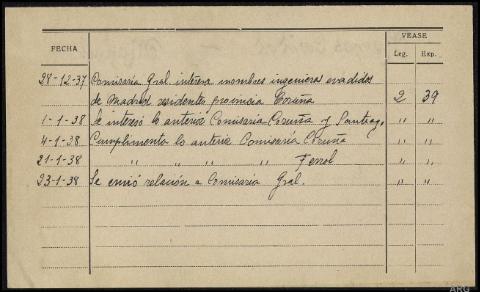 VEASE
FECHA Leg. Exp.
28-12-37 Comisaría Gral interesa nombres ingenieros evadidos
de Madrid residentes provincia Coruña 2 39
1-1-38 Se interesó lo anterior Comisaria Coruña y Santiago " "
4-1-38 Cumplimenta lo anterior Comisaria Coruña " "
21-1-38 " " " " Ferrol " "
23-1-38 Se envió relación a Comisaría Gral. " "
ARG